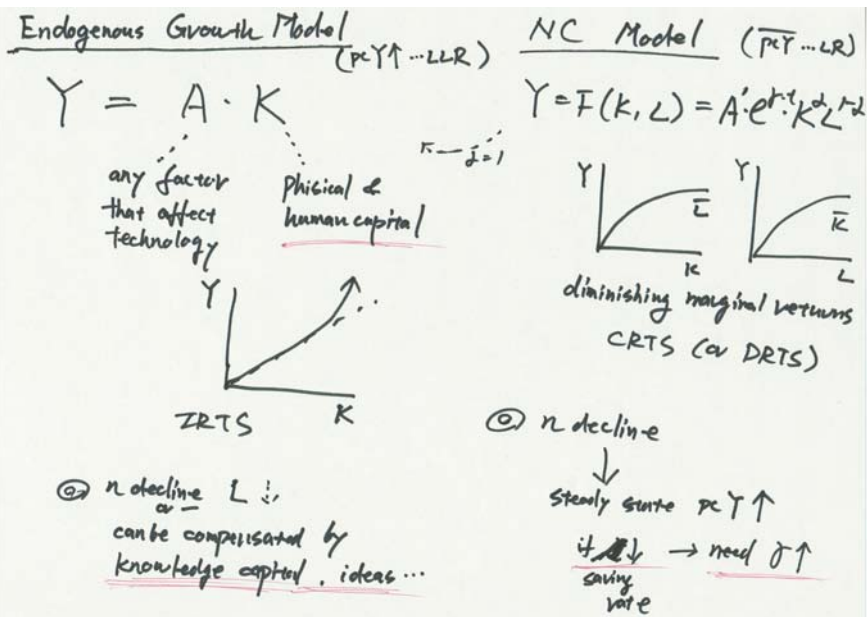 Endogenous Growth Model
(pcY↑ ... LLR)
Y = A · K
any factor
that affect
technology
Phisical &
human capital
Y
K
IRTS
n decline L
or –
can be compensated by
knowledge capital, ideas ...
NC Model (pcY ... LR)
Y = F(K, L) = A'·e^γ·t K^α L^1-α
Y
L
K
Y
K
L
diminishing marginal returns
CRTS (or DRTS)
n decline
↓
Steady state pc Y ↑
if ↓ → need γ↑
saving
rate